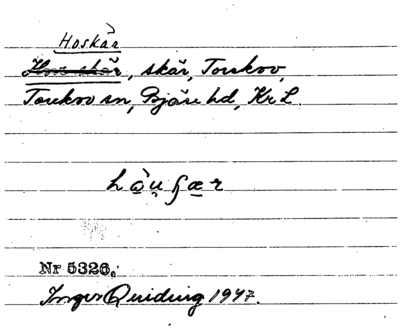 Hoskär
Hov skär, skär, Torekov,
Torekov sn, Bjäre hd, Kr L.
hὰu̯ʂær
Nr 5326,
Inger Quiding 1947.